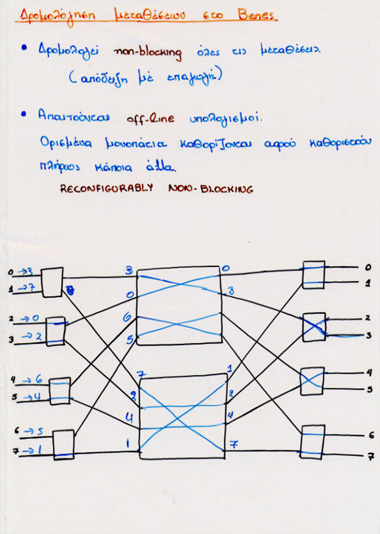 Δρομολόγηση μεταθέσεων στο Benes
• Δρομολογεί non-blocking όλες τις μεταθέσεις.
(απόδειξη με επαγωγή)
• Απαιτούνται off-line υπολογισμοί.
Ορισμένα μονοπάτια καθορίζονται αφού καθοριστούν
πλήρως κάποια άλλα.
RECONFIGURABLY NON-BLOCKING
0→3 3 0 0
1→7 1
0 3
2→0 6 2
3→2 5 3
4→6 7 1 4
5→4 2 2 5
4 4
6→5 6
7→1 1 7 7